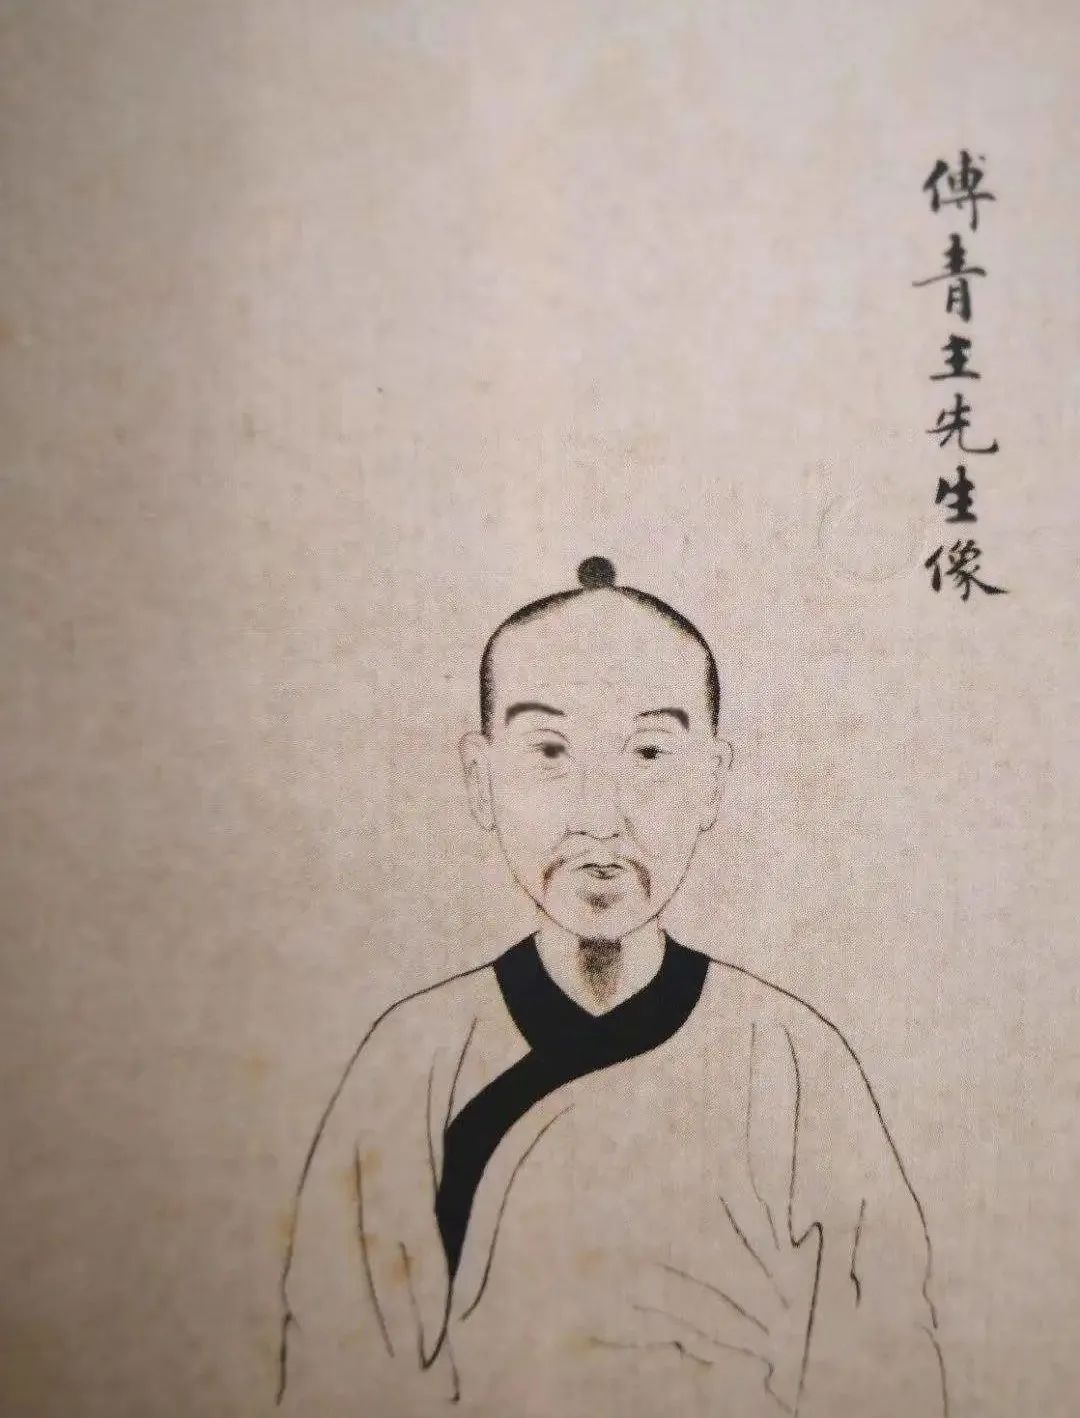 傅青主先生像